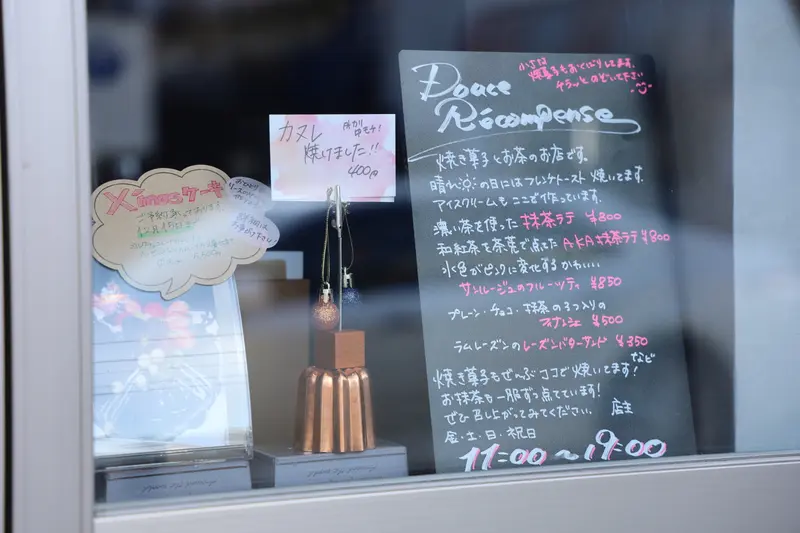 Xmasケーキ
カヌレ
焼けました!!
400円
Douce
Récompense
小さな
焼菓子もおくばりしてます。
チラッとのぞいて下さい
焼き菓子とお茶のお店です。
晴れの日にはフレンチトースト焼いてます。
アイスクリームもここで作っています。
濃い茶を使った抹茶ラテ ¥800
和紅茶を茶葉で点てたAKA抹茶ラテ ¥800
水色がピンクに変化するかわいい
サンルージュのフルーツティ ¥850
プレーン・チョコ・抹茶の3つ入りの
フィナンシェ ¥500
ラムレーズンのレーズンバターサンド ¥350
など
焼き菓子もぜんぶココで焼いてます!
お抹茶も一服ずつ点てています!
ぜひ召し上がってみてください。 店主
金・土・日・祝日
11:00~19:00